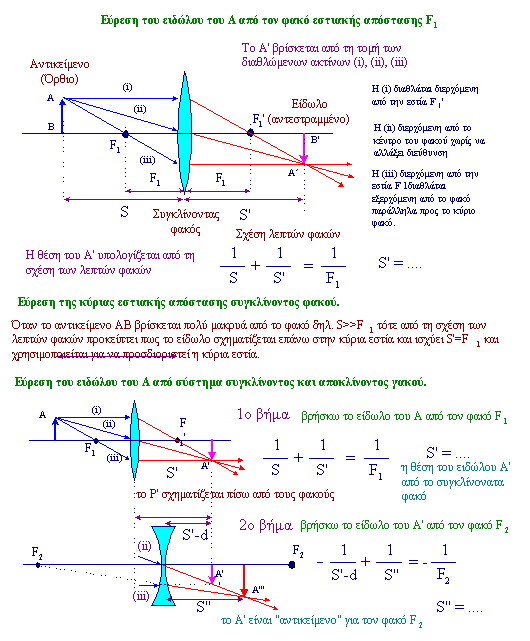 Εύρεση του ειδώλου του Α από τον φακό εστιακής απόστασης F1
Το Α' βρίσκεται από τη τομή των
διαθλώμενων ακτίνων (i), (ii), (iii)
Αντικείμενο
(Όρθιο)
(i)
Α
(ii)
Β
F1
(iii)
F1'
Είδωλο
(αντεστραμμένο)
Β'
Α'
F1
F1
S
S'
Συγκλίνοντας
φακός
Η (i) διαθλάται διερχόμενη
από την εστία F1'
Η (ii) διερχόμενη από το
κέντρο του φακού χωρίς να
αλλάξει διεύθυνση
Η (iii) διερχόμενη από την
εστία F 1διαθλάται
εξερχόμενη από το φακό
παράλληλα προς το κύριο
φακό.
Σχέση λεπτών φακών
Η θέση του Α' υπολογίζεται από τη
σχέση των λεπτών φακών
1/S + 1/S' = 1/F1
S' = ....
Εύρεση της κύριας εστιακής απόστασης συγκλίνοντος φακού.
Όταν το αντικείμενο ΑΒ βρίσκεται πολύ μακρυά από το φακό δηλ. S>>F 1 τότε από τη σχέση των
λεπτών φακών προκείπτει πως το είδωλο σχηματίζεται επάνω στην κύρια εστία και ισχύει S'=F 1 και
χρησιμοποιείται για να προσδιοριστεί η κύρια εστία.
Εύρεση του ειδώλου του Α από σύστημα συγκλίνοντος και αποκλίνοντος γακού.
Α
(i)
(ii)
F1
(iii)
F1'
S'
Α'
1ο βήμα βρήσκω το είδωλο του Α από τον φακό F1
1/S + 1/S' = 1/F1
S' = ....
η θέση του ειδώλου Α'
από το συγκλίνονατα
φακό
το Ρ' σχηματίζεται πίσω από τους φακούς
S'-d
2ο βήμα βρήσκω το είδωλο του Α' από τον φακό F2
F2
(ii)
(iii)
Α'
Α'''
F2
S''
- 1/S'-d + 1/S'' = - 1/F2
S'' = ....
το Α' είναι "αντικείμενο" για τον φακό F2